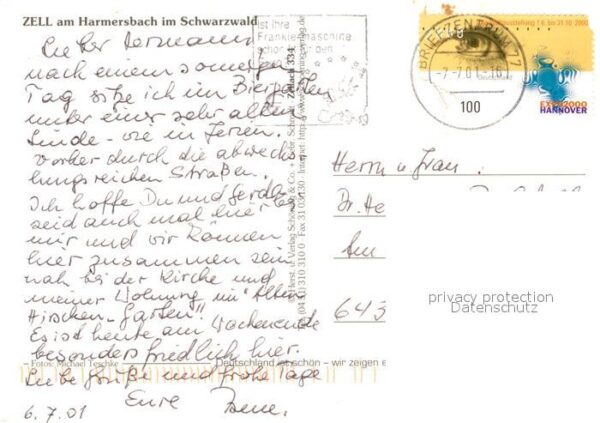 ZELL am Harmersbach im Schwarzwald
Lieber Hermann
nach einem sonnigen
Tag sitze ich im Biergarten
unter einer sehr alten
Linde - wie in Ferien.
Vorher durch die abwechs
lungsreichen Straßen.
Ich hoffe Du und Gerda
seid auch mal hier
mir und wir können
hier zusammen sein
nah bei der Kirche und
meiner Wohnung im "Alten
Hirschen-Garten".
Es ist heute am Wochenende
besonders friedlich hier.
Liebe Grüße und frohe Tage
Eure
6.7.01
Fotos: Michael Teschke
Deutschland ist schön – wir zeigen e
Zellach 334
Ist Ihre
Frankiermaschine
schon für den
BRIEFZENTRUM 77
-7.7.01-16
100
1.6. bis 31.10. 2000
EXPO2000
HANNOVER
Herrn u. Frau
Dr. He
Am
643
privacy protection
Datenschutz